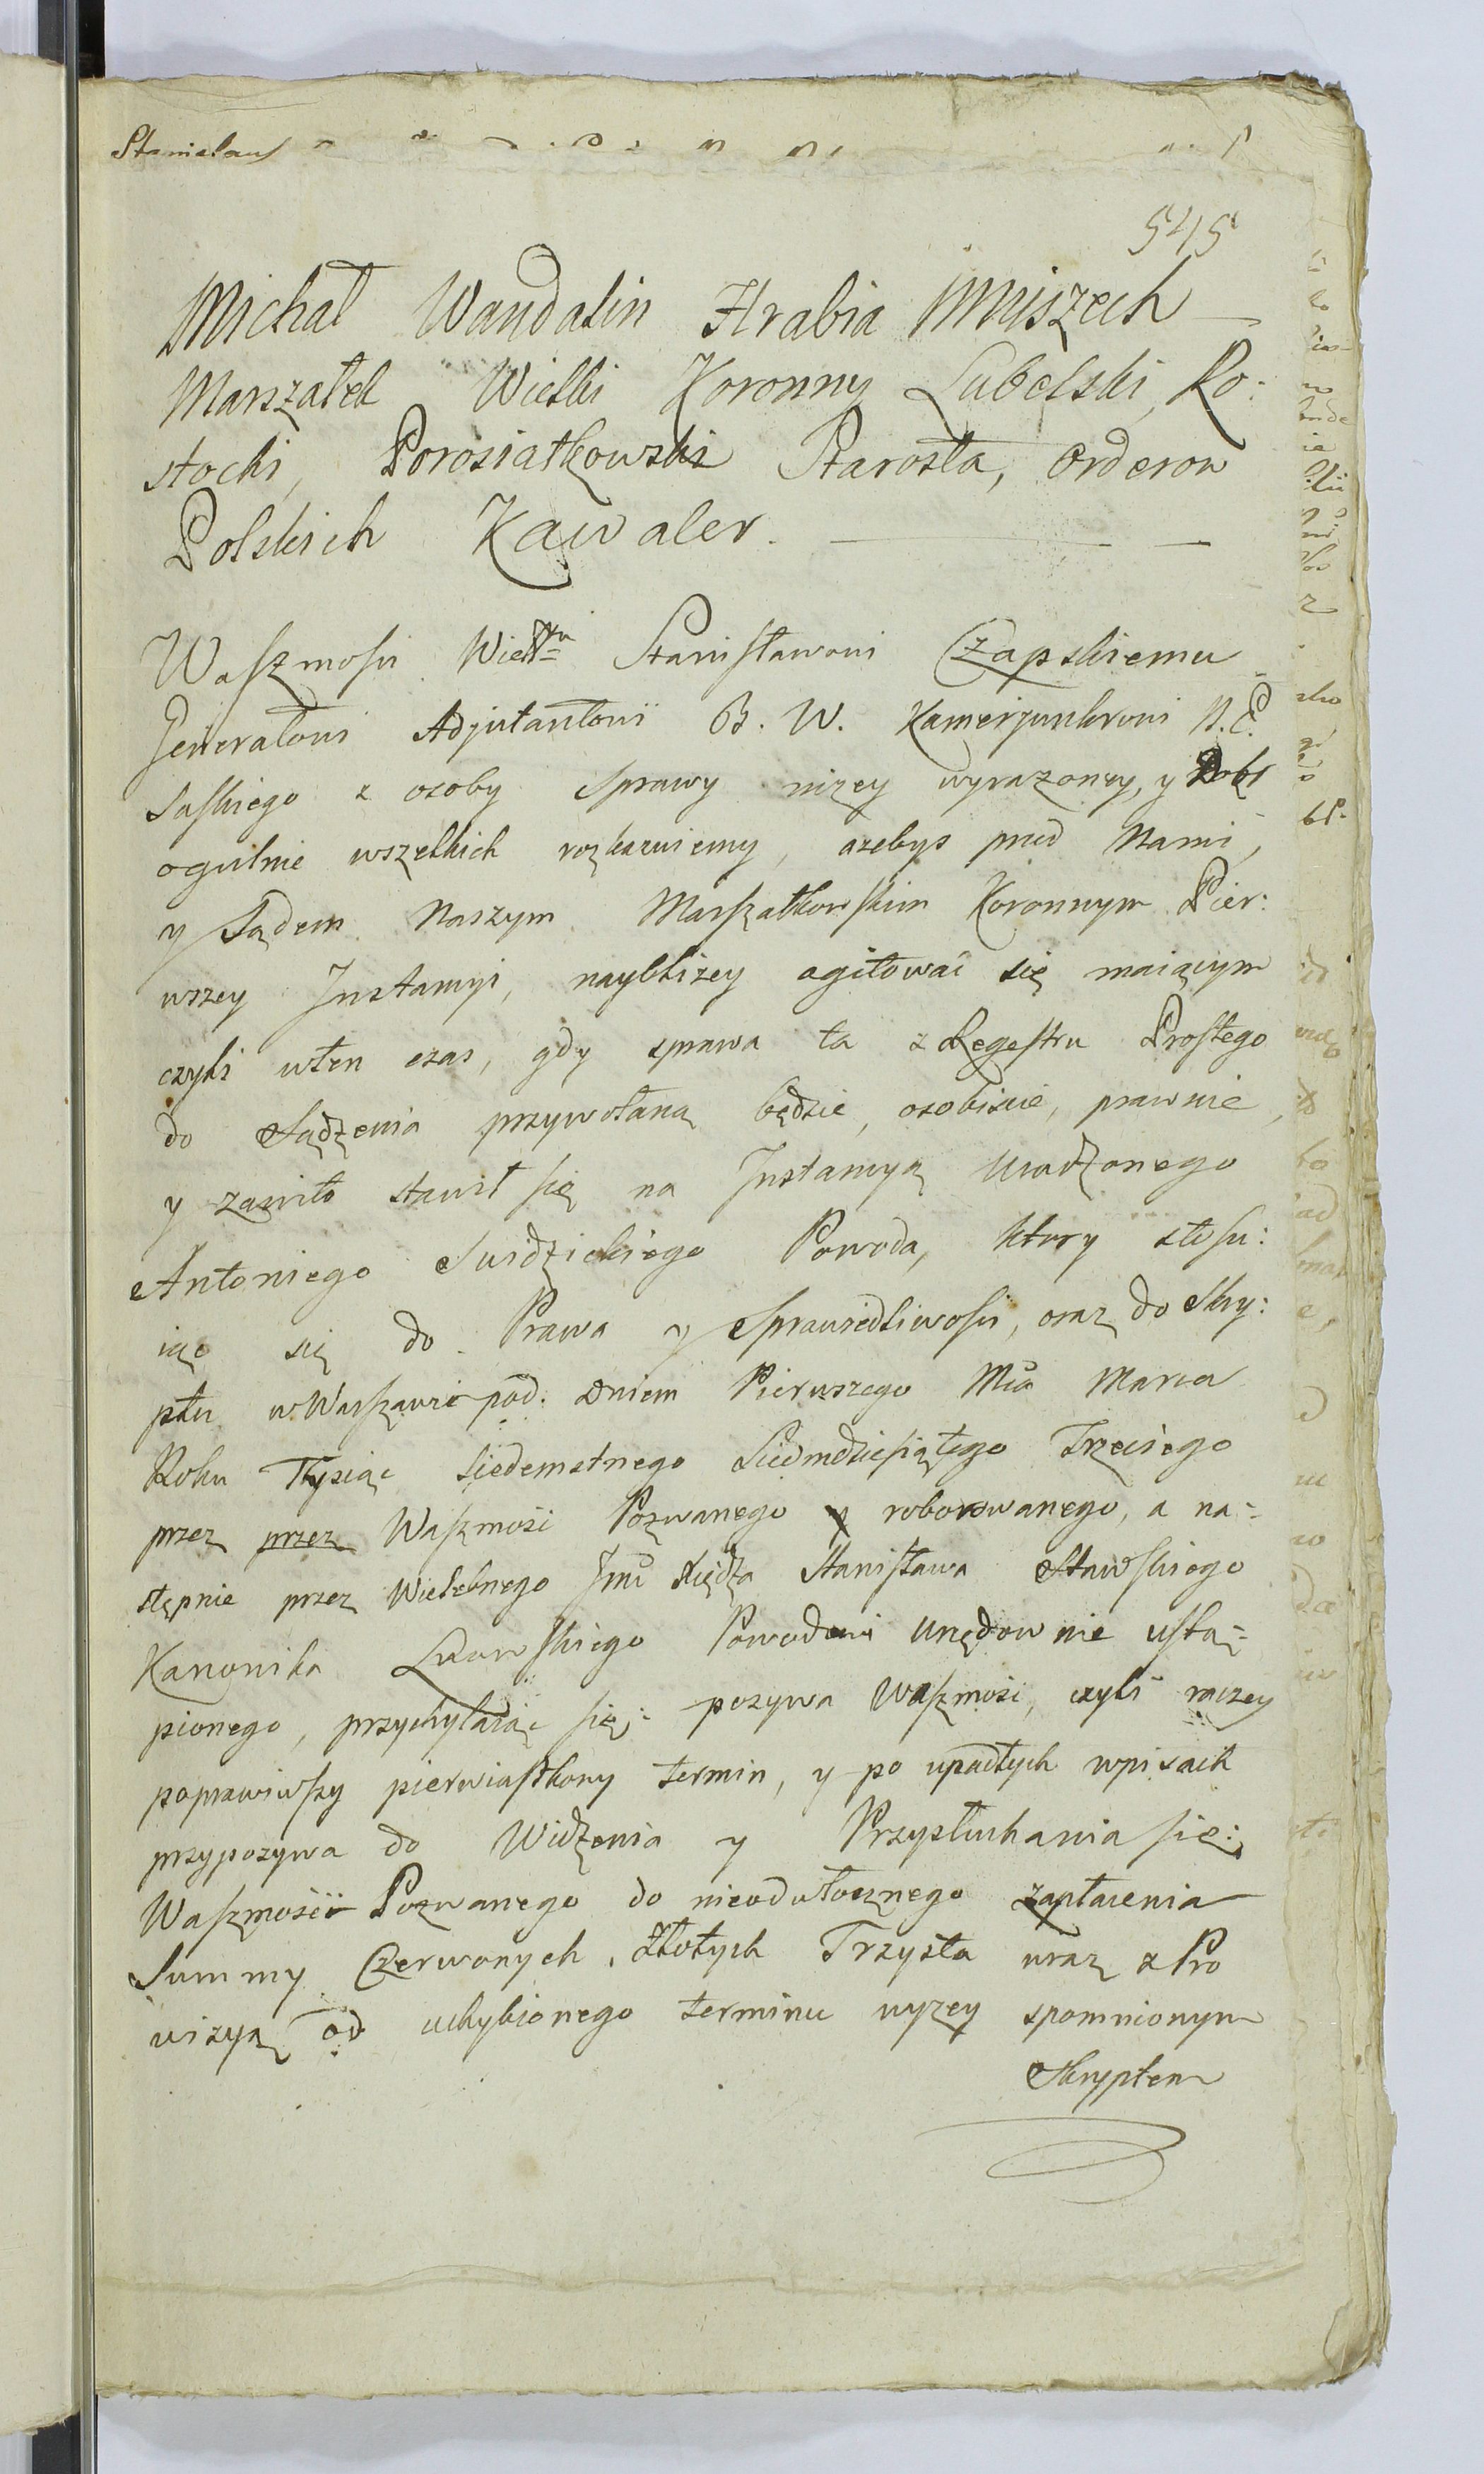 Stanislaus
545
Michał Wandalin Hrabia Mniszech —
Marszałek Wielki Koronny Lubelski, Ro:
stocki, Porosiatkowski Starosta, Orderow
Polskich Kawaler. — —
Waszmosci Wielmu Stanisławowi Czapskiemu
Generałowi Adjutantowi B. W. Kamerjunkrowi N. E.
Saskiego z osoby sprawy niżey wyrazoney, y Dobr
ogulnie wszelkich rozkazuiemy, azebys przed Nami,
y Sądem Naszym Marszałkowskim Koronnym Pier:
wszey Instancyi, naybliżey agitować się maiącym
czyli wten czas, gdy sprawa ta z Regestru Prostego
do Sądzenia przywołaną będzie, osobiscie, prawnie,
y zawito stawił się na Instancyą Urodzonego
Antoniego Suidzickiego Powoda, ktory stosu:
iąc się do Prawa y Sprawiedliwosci, oraz do Skry:
ptu w Warszawie pod. Dniem Pierwszego Mca Marca
Roku Tysiąc Siedemsetnego Siedmdziesiątego Trzeciego
przez przez Waszmosci Pozwanego y roborowanego, a na:
stępnie przez Wielebnego Jmci Xiędza Stanisława Stawskiego
Kanonika Lwowskiego Powodowi Urzędownie ustą:
pionego, przychylaiąc się: pozywa Waszmosci, czyli raczey
poprawiwszy pierwiastkowy termin, y po upadłych wpisach
przypozywa do Widzenia y Przysłuchania się:
Waszmosci Pozwanego do nieodwłocznego zapłacenia
Summy Czerwonych Złotych Trzysta wraz z Pro
wizyą od uchybionego terminu wyzey spomnionym
Skryptem